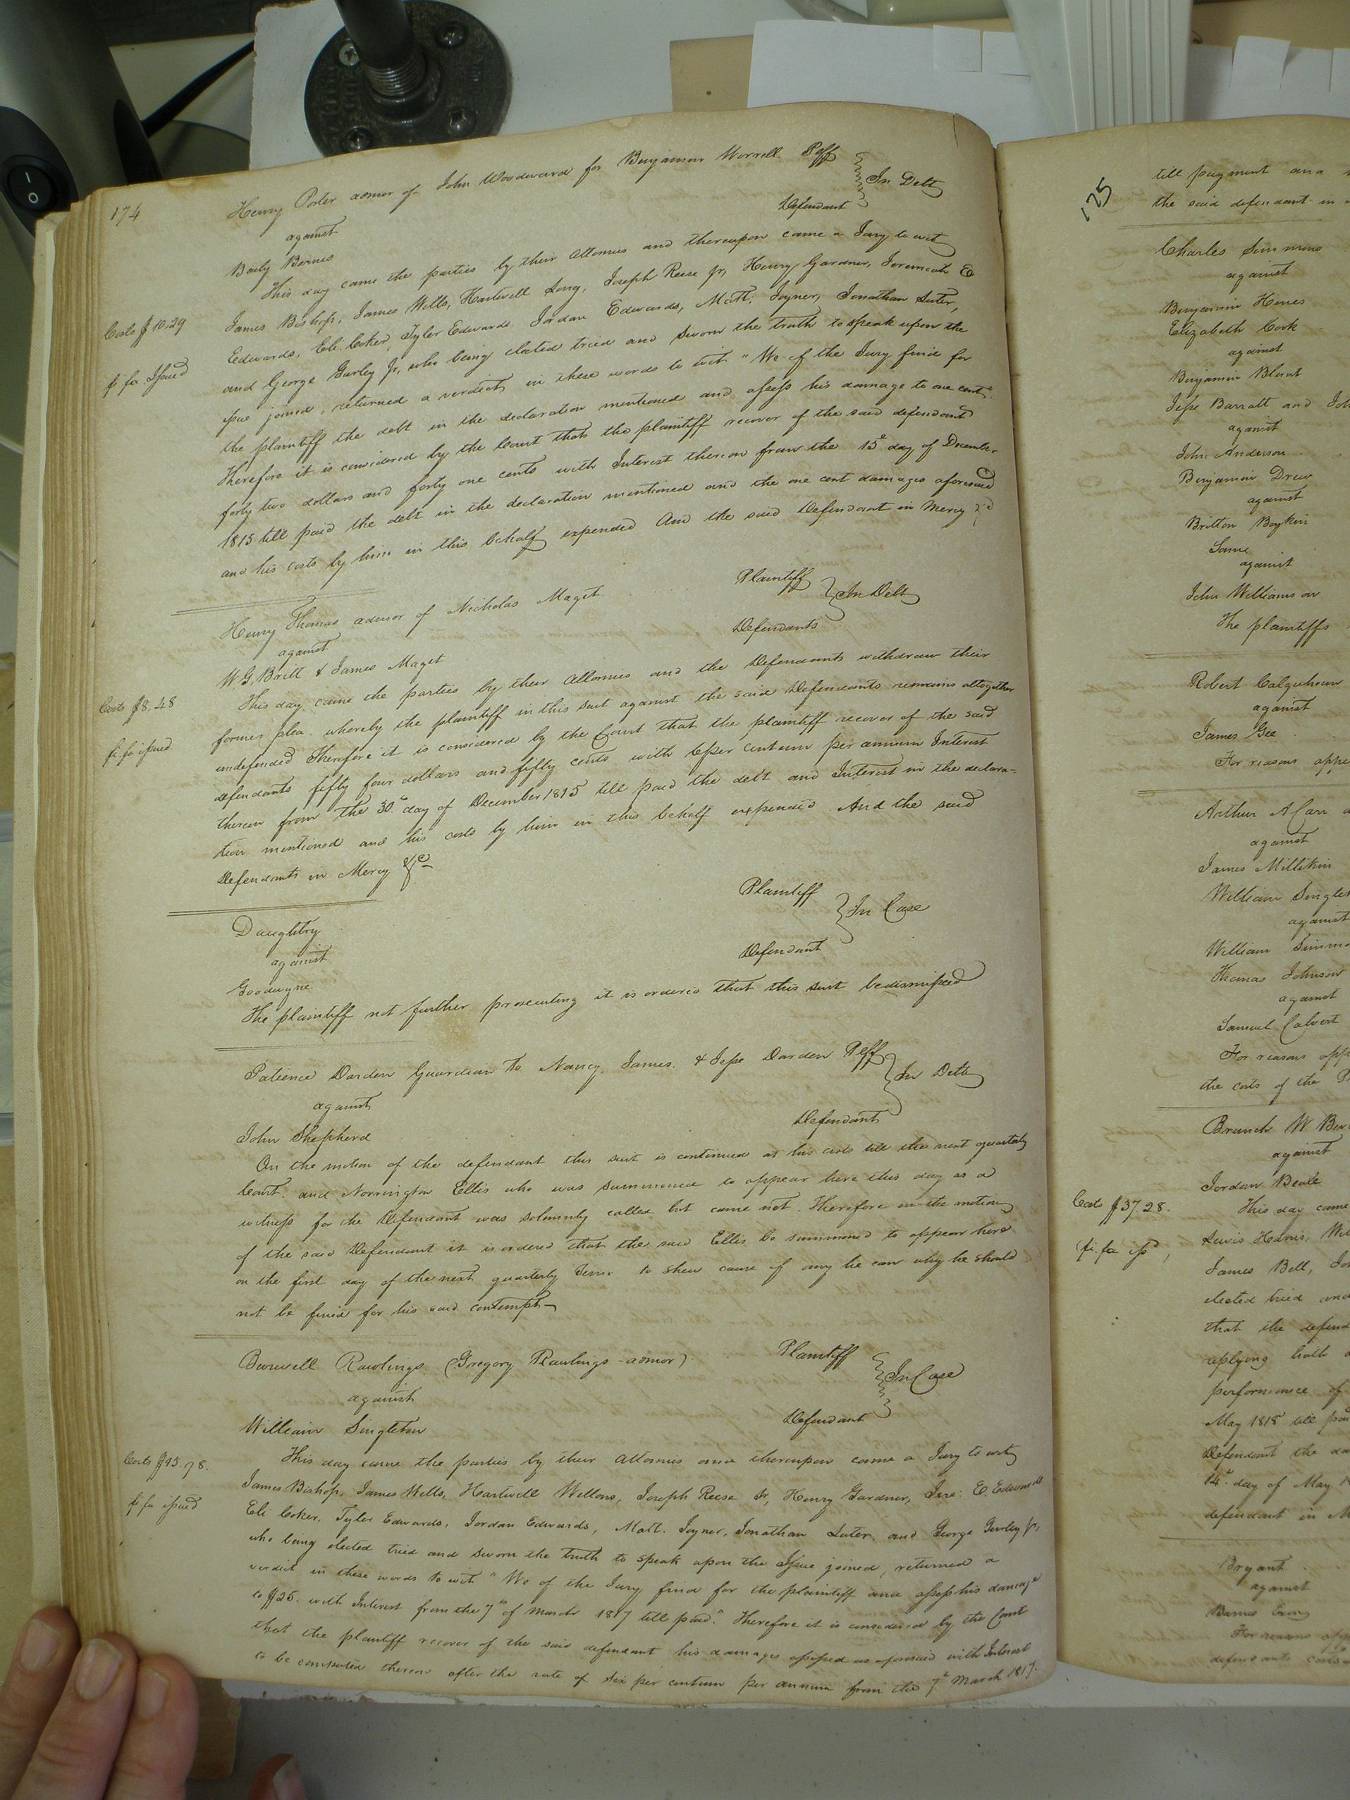 174
Henry Porter admor of John Woodward for Benjamin Worrell Plff
against
In Debt
Baily Barnes
Defendant
This day came the parties by their attornies and thereupon came a Jury to wit
James Bishop, James Wills, Hartwell Long, Joseph Reese Jr, Henry Gardner, Jeremiah E
Edwards, Eli Coker, Tyler Edwards Jordan Edwards, Matt. Joyner, Jonathan Luter,
and George Gurley Jr, who being elected tried and sworn the truth to speak upon the
Costs $10.29
fi fa Issued
issue joined, returned a verdict in these words to wit "We of the Jury find for
the plaintiff the debt in the declaration mentioned and assess his damage to one cent."
Therefore it is considered by the Court that the plaintiff recover of the said defendant
forty two dollars and forty one cents with Interest thereon from the 15th day of December
1815 till paid the debt in the declaration mentioned and the one cent damages aforesaid
and his costs by him in this behalf expended And the said Defendant in Mercy &c
Henry Thomas admor of Nicholas Maget
Plaintiff
against
In Debt
W. G. Britt & James Maget
Defendants
This day came the parties by their Attornies and the Defendants withdraw their
former plea whereby the plaintiff in this suit against the said Defendants remains altogether
undefended Therefore it is considered by the Court that the plaintiff recover of the said
Costs $8.48
fi fa issued
defendants fifty four dollars and fifty cents with 6 per centum per annum Interest
thereon from the 30th day of December 1815 till paid the debt and Interest in the declara-
tion mentioned and his costs by him in this behalf expended And the said
Defendants in Mercy &c
Daughtry
Plaintiff
against
In Case
Goodwyne
Defendant
The plaintiff not further prosecuting it is ordered that this suit be dismissed
Patience Darden Guardian to Nancy, James, & Jesse Darden Plff
against
In Debt
John Shepherd
Defendant
On the motion of the defendant this suit is continued at his costs till the next quarterly
Court. and Norrington Ellis who was summoned to appear here this day as a
witness for the Defendant was solemnly called but came not Therefore on the motion
of the said Defendant it is ordered that the said Ellis be summoned to appear here
on the first day of the next quarterly Term to shew cause if any he can why he should
not be fined for his said contempt
Burwell Rawlings (Gregory Rawlings admor)
Plaintiff
against
In Case
William Singleton
Defendant
This day came the parties by their Attornies and thereupon came a Jury to wit
Costs $15.78.
fi fa issued
James Bishop, James Wells, Hartwell Willons, Joseph Reese Jr, Henry Gardner, Jere: E. Edwards
Eli Coker, Tyler Edwards, Jordan Edwards, Matt. Joyner, Jonathan Luter, and George Gurley Jr,
who being elected tried and sworn the truth to speak upon the Issue joined, returned a
verdict in these words to wit "We of the Jury find for the plaintiff and assess his damage
to $25. with Interest from the 7th of March 1817 till paid." Therefore it is considered by the Court
that the plaintiff recover of the said defendant his damages assessed as aforesaid with Interest
to be computed thereon after the rate of six per centum per annum from the 7th March 1817.
175
till payment and
the said defendant in
Charles Simmons
against
Benjamin Hines
Elizabeth Cook
against
Benjamin Blunt
Jesse Barratt and
against
John Anderson
Benjamin Drew
against
Britton Boykin
Same
against
John Williamson
The plaintiffs
Robert Colquhoun
against
James Gee
For reasons
Arthur A Carr
against
James Millikin
William
against
William
Thomas Johnson
against
Samuel Calvert
For reasons
the costs of the
Branch W
against
Jordan Beale
Costs $37.28.
fi. fa issd
This day came
Lewis Harris,
James Bell,
elected tried and
that the
applying
performance of
May 1818 till
Defendant the
14th day of May
defendant in
Bryant
against
Barnes
For reasons